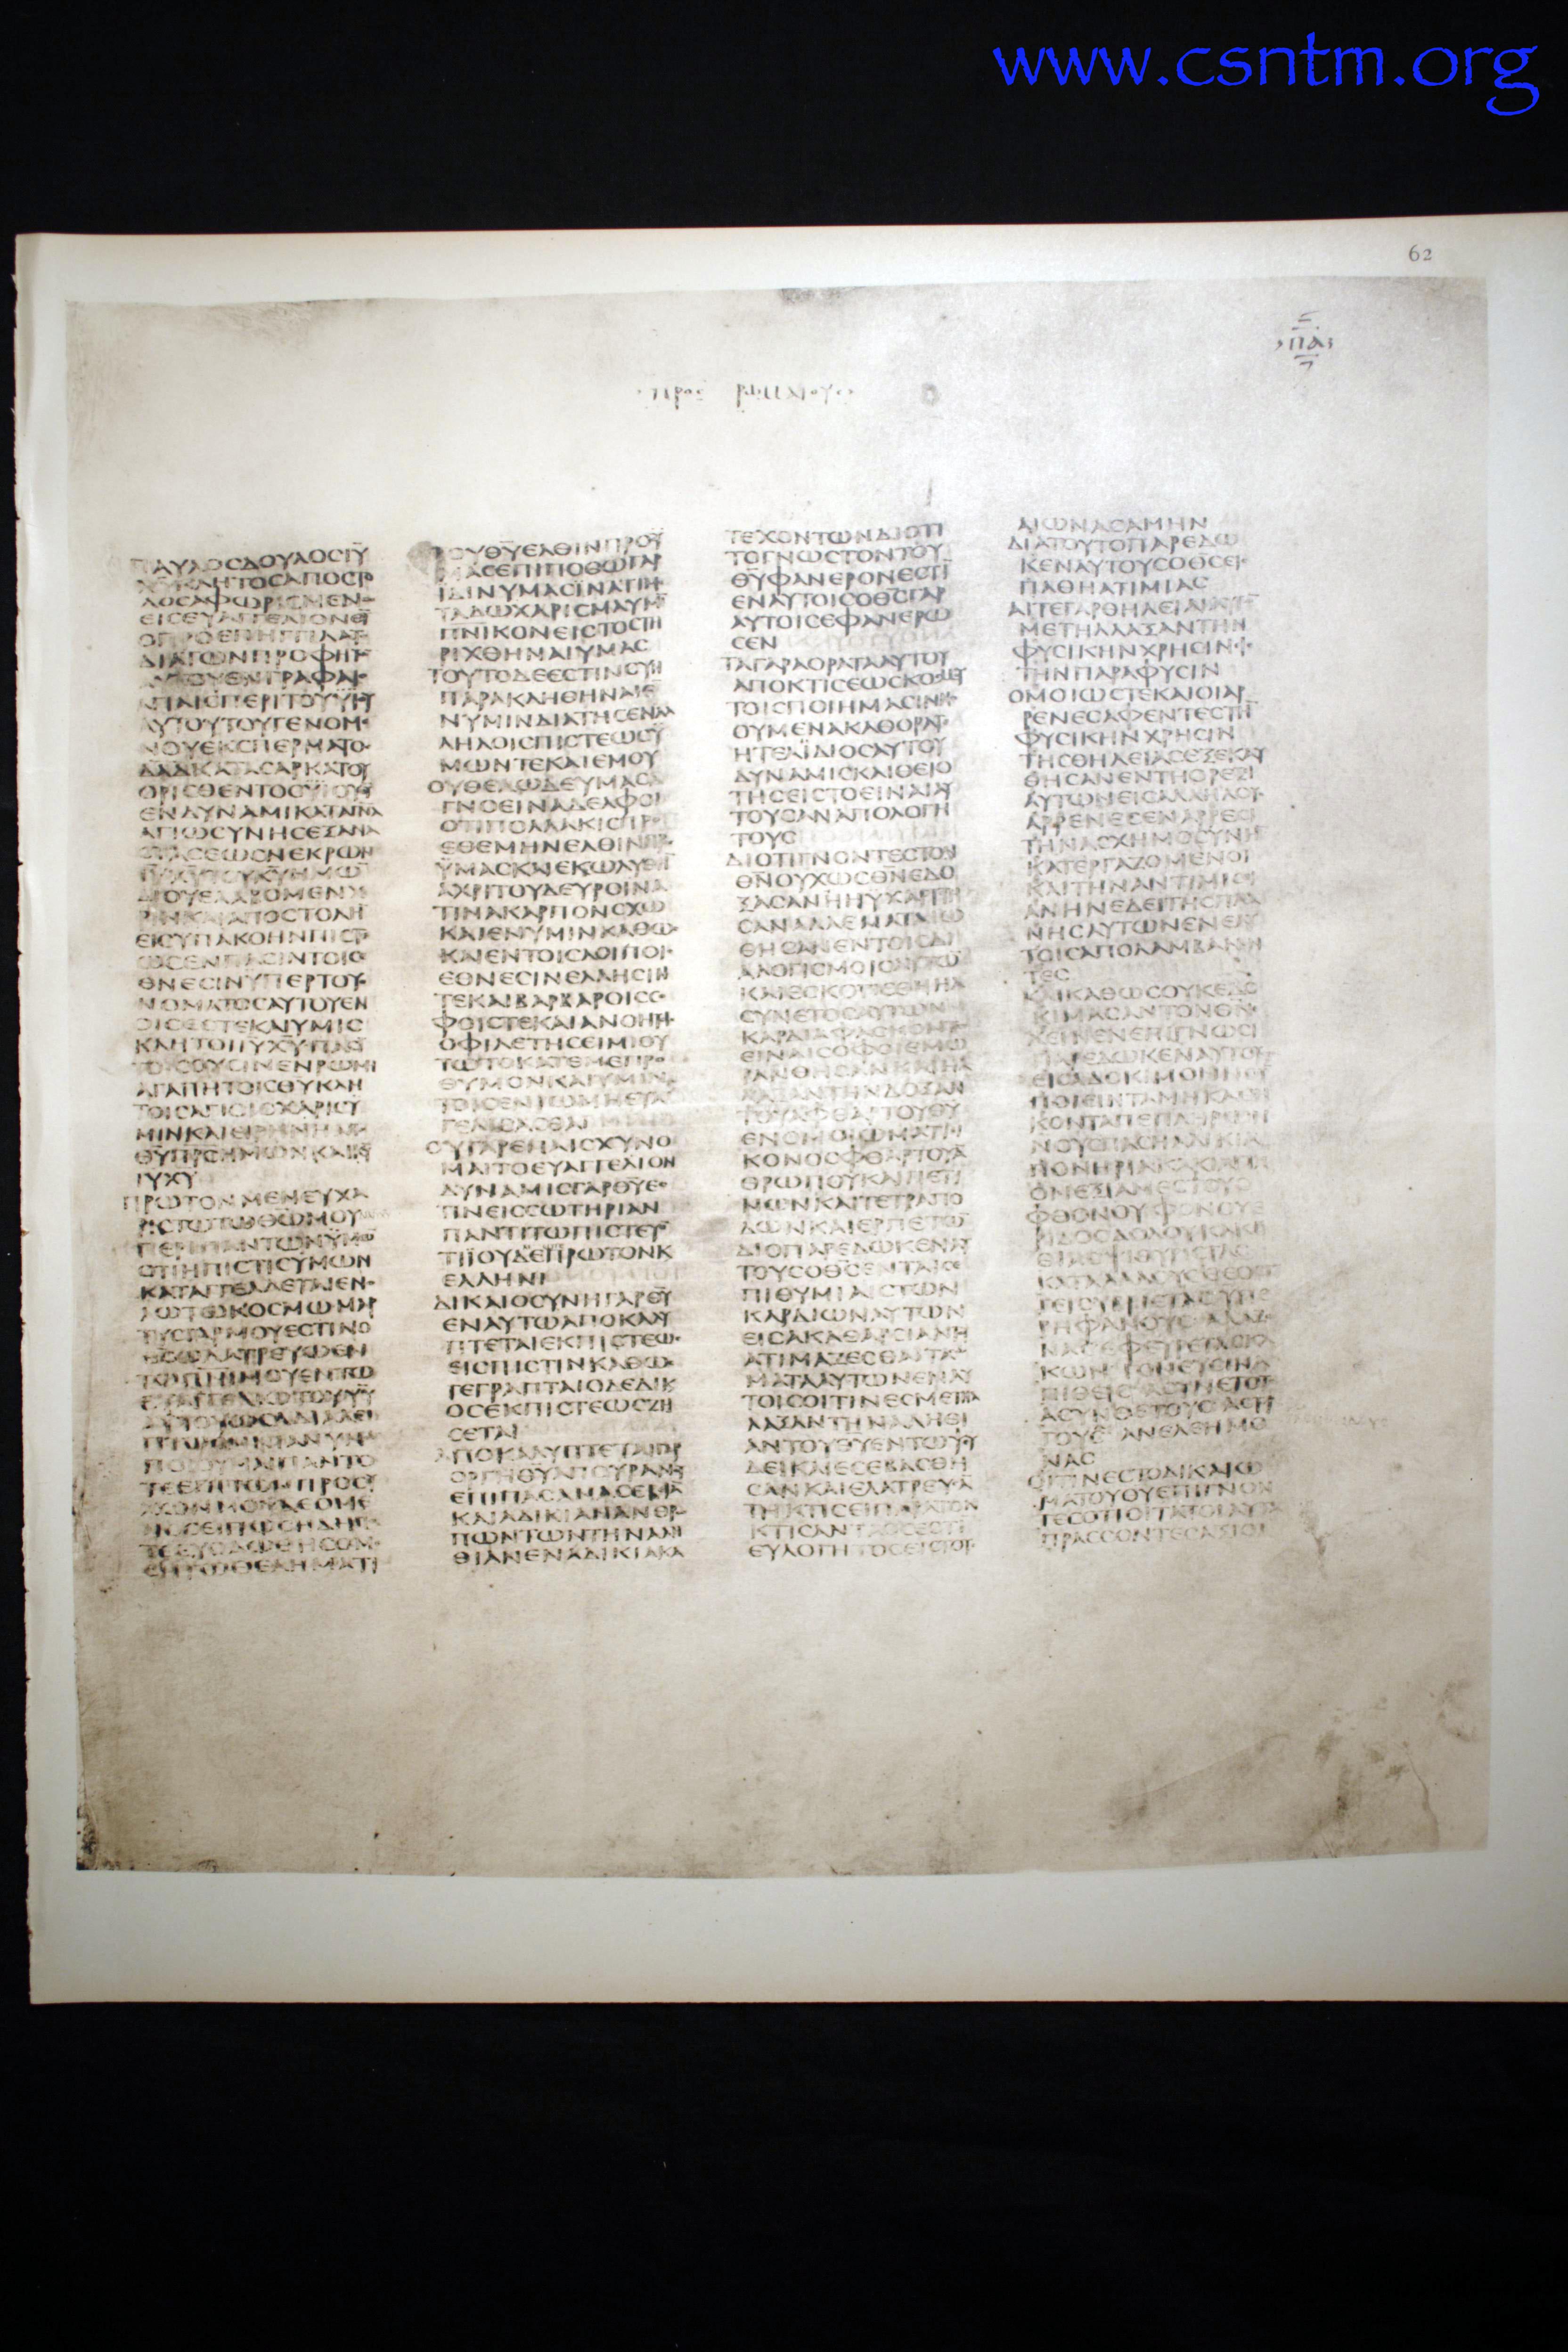 www.csntm.org
62
ΠΑ
προς ρωμαιους
ΠΑΥΛΟСΔΟΥΛΟСΙΥ
ΧΥΚΛΗΤΟСΑΠΟСΤΟ
ΛΟСΑΦΩΡΙСΜΕΝΟ
ΕΙСΕΥΑΓΓΕΛΙΟΝΘΥ
ΟΠΡΟΕΠΗΓΓΙΛΑΤΟ
ΔΙΑΤΩΝΠΡΟΦΗΤΩ
ΑΥΤΟΥΕΝΓΡΑΦΑΙС
ΑΓΙΑΙСΠΕΡΙΤΟΥΥΙΟΥ
ΑΥΤΟΥΤΟΥΓΕΝΟΜΕ
ΝΟΥΕΚСΠΕΡΜΑΤΟС
ΔΑΔΚΑΤΑСΑΡΚΑΤΟΥ
ΟΡΙСΘΕΝΤΟСΥΙΟΥΘΥ
ΕΝΔΥΝΑΜΙΚΑΤΑΠΝΑ
ΑΓΙΩСΥΝΗСΕΞΑΝΑ
СΤΑСΕΩСΝΕΚΡΩΝ
ΙΥΧΥΤΟΥΚΥΗΜΩ
ΔΙΟΥΕΛΑΒΟΜΕΝΧΑ
ΡΙΝΚΑΙΑΠΟСΤΟΛΗ
ΕΙСΥΠΑΚΟΗΝΠΙСΤΕ
ΩСΕΝΠΑСΙΝΤΟΙС
ΕΘΝΕСΙΝΥΠΕΡΤΟΥΟ
ΝΟΜΑΤΟСΑΥΤΟΥΕΝ
ΟΙСΕСΤΕΚΑΙΥΜΙС
ΚΛΗΤΟΙΙΥΧΥΠΑСΙ
ΤΟΙСΟΥСΙΝΕΝΡΩΜΗ
ΑΓΑΠΗΤΟΙСΘΥΚΛΗ
ΤΟΙСΑΓΙΟΙСΧΑΡΙСΥ
ΜΙΝΚΑΙΕΙΡΗΝΗΑΠΟ
ΘΥΠΡСΗΜΩΝΚΑΙΚΥ
ΙΥΧΥ
ΠΡΩΤΟΝΜΕΝΕΥΧΑ
ΡΙСΤΩΤΩΘΩΜΟΥ
ΠΕΡΙΠΑΝΤΩΝΥΜΩ
ΟΤΙΗΠΙСΤΙСΥΜΩΝ
ΚΑΤΑΓΓΕΛΛΕΤΑΙΕΝΟ
ΛΩΤΩΚΟСΜΩΜΑΡ
ΤΥСΓΑΡΜΟΥΕСΤΙΝΟ
ΘСΩΛΑΤΡΕΥΩΕΝ
ΤΩΠΝΙΜΟΥΕΝΤΩ
ΕΥΑΓΓΕΛΙΩΤΟΥΥΙΟΥ
ΑΥΤΟΥΩСΑΔΙΑΛΕΙ
ΠΤΩСΜΝΙΑΝΥΜΩ
ΠΟΙΟΥΜΑΙΠΑΝΤΟ
ΤΕΕΠΙΤΩΝΠΡΟСΕΥ
ΧΩΝΜΟΥΔΕΟΜΕ
ΝΟСΕΙΠΩСΗΔΗΠΟ
ΤΕΕΥΟΔΩΘΗСΟΜΕ
ΕΝΤΩΘΕΛΗΜΑΤΙ
ΤΟΥΘΥΕΛΘΙΝΠΡΟСΥ
ΜΑСΕΠΙΠΟΘΩΓΑΡ
ΙΔΙΝΥΜΑСΙΝΑΤΙΜΕ
ΤΑΔΩΧΑΡΙСΜΑΥΜΙ
ΠΝΙΚΟΝΕΙСΤΟСΤΗ
ΡΙΧΘΗΝΑΙΥΜΑС
ΤΟΥΤΟΔΕΕСΤΙΝСΥΝ
ΠΑΡΑΚΛΗΘΗΝΑΙΕ
ΝΥΜΙΝΔΙΑΤΗСΕΝΑΛ
ΛΗΛΟΙСΠΙСΤΕΩСΥ
ΜΩΝΤΕΚΑΙΕΜΟΥ
ΟΥΘΕΛΩΔΕΥΜΑСΑ
ΓΝΟΕΙΝΑΔΕΛΦΟΙ
ΟΤΙΠΟΛΛΑΚΙСΠΡΟ
ΕΘΕΜΗΝΕΛΘΙΝΠΡΟС
ΥΜΑСΚΑΙΕΚΩΛΥΘΗ
ΑΧΡΙΤΟΥΔΕΥΡΟΙΝΑ
ΤΙΝΑΚΑΡΠΟΝСΧΩ
ΚΑΙΕΝΥΜΙΝΚΑΘΩС
ΚΑΙΕΝΤΟΙСΛΟΙΠΟΙС
ΕΘΝΕСΙΝΕΛΛΗСΙΝ
ΤΕΚΑΙΒΑΡΒΑΡΟΙССΟ
ΦΟΙСΤΕΚΑΙΑΝΟΗΤΟΙС
ΟΦΙΛΕΤΗСΕΙΜΙΟΥ
ΤΩΤΟΚΑΤΕΜΕΠΡΟ
ΘΥΜΟΝΚΑΙΥΜΙΝ
ΤΟΙСΕΝΡΩΜΗΕΥΑΓ
ΓΕΛΙСΑСΘΑΙ
ΟΥΓΑΡΕΠΑΙСΧΥΝΟ
ΜΑΙΤΟΕΥΑΓΓΕΛΙΟΝ
ΔΥΝΑΜΙСΓΑΡΘΥΕС
ΤΙΝΕΙССΩΤΗΡΙΑΝ
ΠΑΝΤΙΤΩΠΙСΤΕΥΟ
ΤΙΙΟΥΔΕΠΡΩΤΟΝΚ
ΕΛΛΗΝΙ
ΔΙΚΑΙΟСΥΝΗΓΑΡΘΥ
ΕΝΑΥΤΩΑΠΟΚΑΛΥ
ΠΤΕΤΑΙΕΚΠΙСΤΕΩС
ΕΙСΠΙСΤΙΝΚΑΘΩС
ΓΕΓΡΑΠΤΑΙΟΔΕΔΙΚ
ΟСΕΚΠΙСΤΕΩСΖΗ
СΕΤΑΙ
ΑΠΟΚΑΛΥΠΤΕΤΑΙΓΑΡ
ΟΡΓΗΘΥΑΠΟΥΡΑΝΟΥ
ΕΠΙΠΑСΑΝΑСΕΒΙΑ
ΚΑΙΑΔΙΚΙΑΝΑΝΘΡΩ
ΠΩΝΤΩΝΤΗΝΑΛΗ
ΘΙΑΝΕΝΑΔΙΚΙΑΚΑ
ΤΕΧΟΝΤΩΝΔΙΟΤΙ
ΤΟΓΝΩСΤΟΝΤΟΥ
ΘΥΦΑΝΕΡΟΝΕСΤΙ
ΕΝΑΥΤΟΙСΟΘСΓΑΡ
ΑΥΤΟΙСΕΦΑΝΕΡΩ
СΕΝ
ΤΑΓΑΡΑΟΡΑΤΑΑΥΤΟΥ
ΑΠΟΚΤΙСΕΩСΚΟСΜΟΥ
ΤΟΙСΠΟΙΗΜΑСΙΝΝΟ
ΟΥΜΕΝΑΚΑΘΟΡΑΤΑΙ
ΗΤΕΑΙΔΙΟСΑΥΤΟΥ
ΔΥΝΑΜΙСΚΑΙΘΕΙΟ
ΤΗСΕΙСΤΟΕΙΝΑΙΑΥ
ΤΟΥСΑΝΑΠΟΛΟΓΗ
ΤΟΥС
ΔΙΟΤΙΓΝΟΝΤΕСΤΟΝ
ΘΝΟΥΧΩСΘΝΕΔΟ
ΞΑСΑΝΗΗΥΧΑΡΙСΤΗ
СΑΝΑΛΛΕΜΑΤΑΙΩ
ΘΗСΑΝΕΝΤΟΙСΔΙ
ΑΛΟΓΙСΜΟΙСΑΥΤΩ
ΚΑΙΕСΚΟΤΙСΘΗΗΑ
СΥΝΕΤΟСΑΥΤΩΝ
ΚΑΡΔΙΑΦΑСΚΟΝΤΕС
ΕΙΝΑΙСΟΦΟΙΕΜΩ
ΡΑΝΘΗСΑΝΚΑΙΗΛ
ΛΑΞΑΝΤΗΝΔΟΞΑΝ
ΤΟΥΑΦΘΑΡΤΟΥΘΥ
ΕΝΟΜΟΙΩΜΑΤΙΙ
ΚΟΝΟСΦΘΑΡΤΟΥΑ
ΘΡΩΠΟΥΚΑΙΠΕΤΙ
ΝΩΝΚΑΙΤΕΤΡΑΠΟ
ΔΩΝΚΑΙΕΡΠΕΤΩ
ΔΙΟΠΑΡΕΔΩΚΕΝΑΥ
ΤΟΥСΟΘСΕΝΤΑΙСΕ
ΠΙΘΥΜΙΑΙСΤΩΝ
ΚΑΡΔΙΩΝΑΥΤΩΝ
ΕΙСΑΚΑΘΑΡСΙΑΝΤΟΥ
ΑΤΙΜΑΖΕСΘΑΙΤΑСΩ
ΜΑΤΑΑΥΤΩΝΕΝΑΥ
ΤΟΙСΟΙΤΙΝΕСΜΕΤΗΛ
ΛΑΞΑΝΤΗΝΑΛΗΘΙ
ΑΝΤΟΥΘΥΕΝΤΩΨΕΥ
ΔΕΙΚΑΙΕСΕΒΑСΘΗ
СΑΝΚΑΙΕΛΑΤΡΕΥСΑ
ΤΗΚΤΙСΕΙΠΑΡΑΤΟΝ
ΚΤΙСΑΝΤΑΟСΕСΤΙ
ΕΥΛΟΓΗΤΟСΕΙСΤΟΥС
ΑΙΩΝΑСΑΜΗΝ
ΔΙΑΤΟΥΤΟΠΑΡΕΔΩ
ΚΕΝΑΥΤΟΥСΟΘСΕΙС
ΠΑΘΗΑΤΙΜΙΑС
ΑΙΤΕΓΑΡΘΗΛΕΙΑΙΑΥΤΩ
ΜΕΤΗΛΛΑΞΑΝΤΗΝ
ΦΥСΙΚΗΝΧΡΗСΙΝ
ΤΗΝΠΑΡΑΦΥСΙΝ
ΟΜΟΙΩСΤΕΚΑΙΟΙΑΡ
ΡΕΝΕСΑΦΕΝΤΕСΤΗ
ΦΥСΙΚΗΝΧΡΗСΙΝ
ΤΗСΘΗΛΕΙΑСΕΞΕΚΑΥ
ΘΗСΑΝΕΝΤΗΟΡΕΞΙ
ΑΥΤΩΝΕΙСΑΛΛΗΛΟΥС
ΑΡΡΕΝΕСΕΝΑΡΡΕСΙ
ΤΗΝΑСΧΗΜΟСΥΝΗ
ΚΑΤΕΡΓΑΖΟΜΕΝΟΙ
ΚΑΙΤΗΝΑΝΤΙΜΙСΘΙ
ΑΝΗΝΕΔΕΙΤΗСΠΛΑ
ΝΗСΑΥΤΩΝΕΝΕΑΥ
ΤΟΙСΑΠΟΛΑΜΒΑΝΟΝ
ΤΕС
ΚΑΙΚΑΘΩСΟΥΚΕΔΟ
ΚΙΜΑСΑΝΤΟΝΘΝΕ
ΧΕΙΝΕΝΕΠΙΓΝΩСΙ
ΠΑΡΕΔΩΚΕΝΑΥΤΟΥС
ΕΙСΑΔΟΚΙΜΟΝΝΟΥ
ΠΟΙΕΙΝΤΑΜΗΚΑΘΗ
ΚΟΝΤΑΠΕΠΛΗΡΩΜΕ
ΝΟΥСΠΑСΗΑΔΙΚΙΑ
ΠΟΝΗΡΙΑΚΑΚΙΑ
ΟΝΕΞΙΑΜΕСΤΟΥС
ΦΘΟΝΟΥΦΟΝΟΥΕ
ΡΙΔΟСΔΟΛΟΥΚΑΚΟΗ
ΚΑΤΑΛΑΛΟΥСΘΕΟСΤΥ
ΓΕΙСΥΒΡΙСΤΑСΥΠΕ
ΡΗΦΑΝΟΥСΑΛΑΖΟ
ΝΑСΕΦΕΥΡΕΤΑСΚΑ
ΚΩΝΓΟΝΕΥСΙΝΑ
ΠΙΘΕΙСΑСΥΝΕΤΟΥС
ΑСΥΝΘΕΤΟΥСΑСΤΟΡ
ΤΟΥСΑΝΕΛΕΗΜΟ
ΝΑС
ΟΙΤΙΝΕСΤΟΔΙΚΑΙΩ
ΜΑΤΟΥΘΥΕΠΙΓΝΟΝ
ΤΕСΟΤΙΟΙΤΑΤΟΙΑΥΤΑ
ΠΡΑССΟΝΤΕСΑΞΙΟΙ